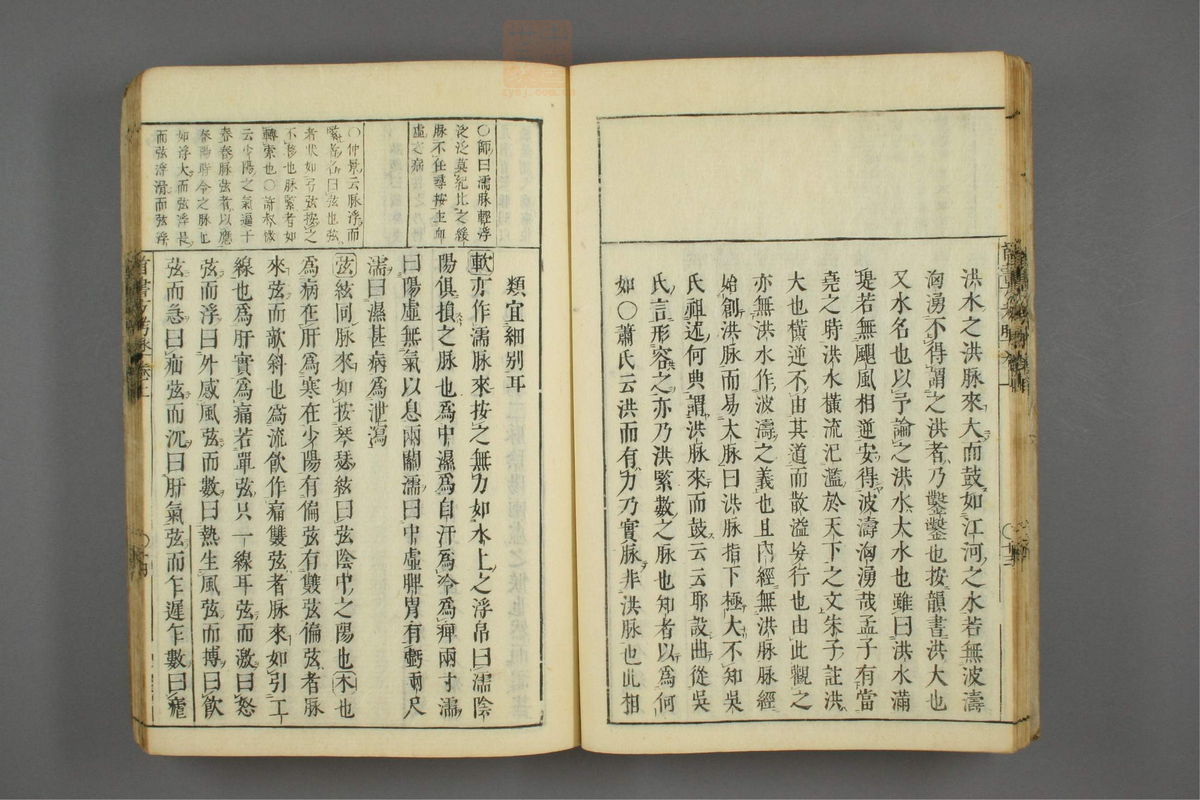 洪水之洪脉來大而鼓如江河之水若無波濤
洶湧不得謂之洪者乃鑿鑿也按韻書洪大也
又水名也以予論之洪水大水也雖曰洪水滿
堤若無颶風相逆安得波濤洶湧哉孟子有當
堯之時洪水橫流汜濫於天下之文朱子註洪
大也橫逆不由其道而散溢妄行也由此觀之
亦無洪水作波濤之義也且內經無洪脉脉經
始創洪脉而易大脉曰洪脉指下極大不知吳
氏祖述何典謂洪脉來而鼓云云耶設曲從吳
氏言形容之亦乃洪緊數之脉也知者以為何
如○蕭氏云洪而有力乃實脉非洪脉也此相
類宜細別耳
○師曰濡脉輕浮
泛泛莫紀比之緩
脉不任尋按主血
虛之病
軟亦作濡脉來按之無力如水上之浮帛曰濡陰
陽俱損之脉也為中濕為自汗為冷為痺兩寸濡
曰陽虛無氣以息兩關濡曰中虛脾胃有虧兩尺
濡曰濕甚病為泄瀉
○仲景云脉浮而
緊者名曰弦也弦
者狀如弓弦按之
不移也脉緊者如
轉索也○許叔微
云少陽之氣通于
春春脉弦者以應
春陽時令之脉也
如浮大而弦浮長
而弦浮滑而弦
弦絃同脉來如按琴瑟絃曰弦陰中之陽也木也
為病在肝為寒在少陽有偏弦有雙弦偏弦者脉
來弦而欹斜也為流飲作痛雙弦者脉來如引二
線也為肝實為痛若單弦只一線耳弦而激曰怒
弦而浮曰外感風弦而數曰熱生風弦而搏曰飲
弦而急曰疝弦而沉曰肝氣弦而乍遲乍數曰瘧